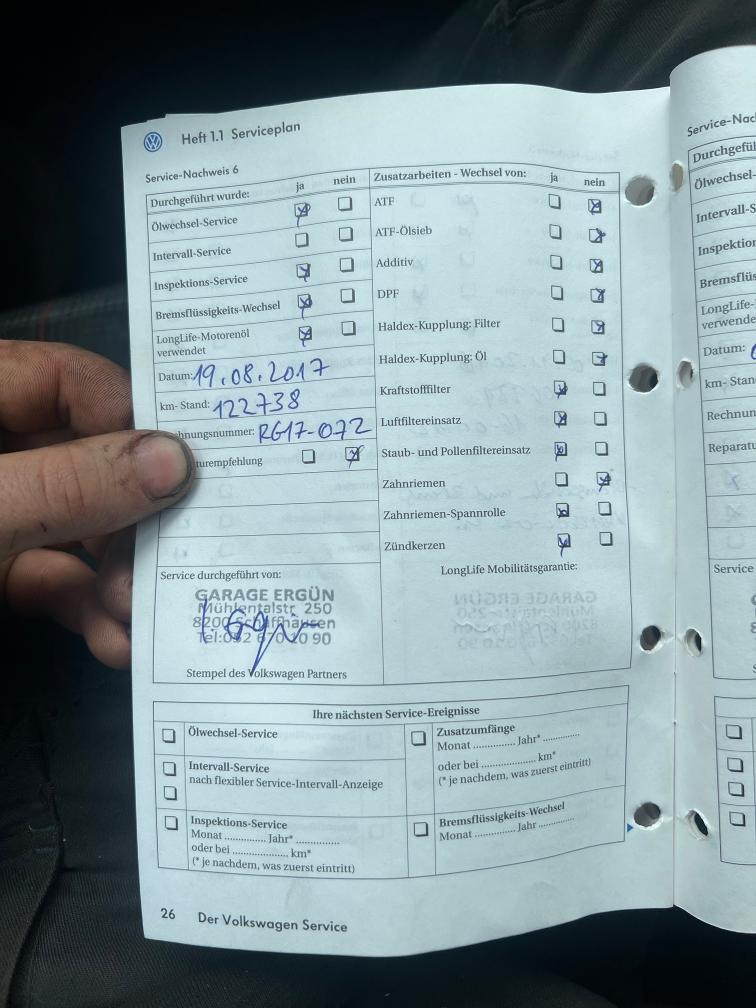 Heft 1.1 Serviceplan
Service-Nachweis 6
Durchgeführt wurde: ja nein
Ölwechsel-Service
Intervall-Service
Inspektions-Service
Bremsflüssigkeits-Wechsel
LongLife-Motorenöl
verwendet
Datum: 19.08.2017
km- Stand: 122738
hnungsnummer: RG17-072
turempfehlung
Zusatzarbeiten - Wechsel von: ja nein
ATF
ATF-Ölsieb
Additiv
DPF
Haldex-Kupplung: Filter
Haldex-Kupplung: Öl
Kraftstofffilter
Luftfiltereinsatz
Staub- und Pollenfiltereinsatz
Zahnriemen
Zahnriemen-Spannrolle
Zündkerzen
Service durchgeführt von:
GARAGE ERGÜN
Mühlentalstr. 250
8200 Schaffhausen
Tel:052 670 10 90
Stempel des Volkswagen Partners
LongLife Mobilitätsgarantie:
Ihre nächsten Service-Ereignisse
Ölwechsel-Service
Intervall-Service
nach flexibler Service-Intervall-Anzeige
Inspektions-Service
Monat .............. Jahr* ...............
oder bei .................... km*
(* je nachdem, was zuerst eintritt)
Zusatzumfänge
Monat ............... Jahr* .............
oder bei ................... km*
(* je nachdem, was zuerst eintritt)
Bremsflüssigkeits-Wechsel
Monat ............... Jahr .............
26 Der Volkswagen Service
Service-Nac
Durchgefüh
Ölwechsel-
Intervall-S
Inspektion
Bremsflüs
LongLife-
verwende
Datum:
km- Stand
Rechnun
Reparatu
Service